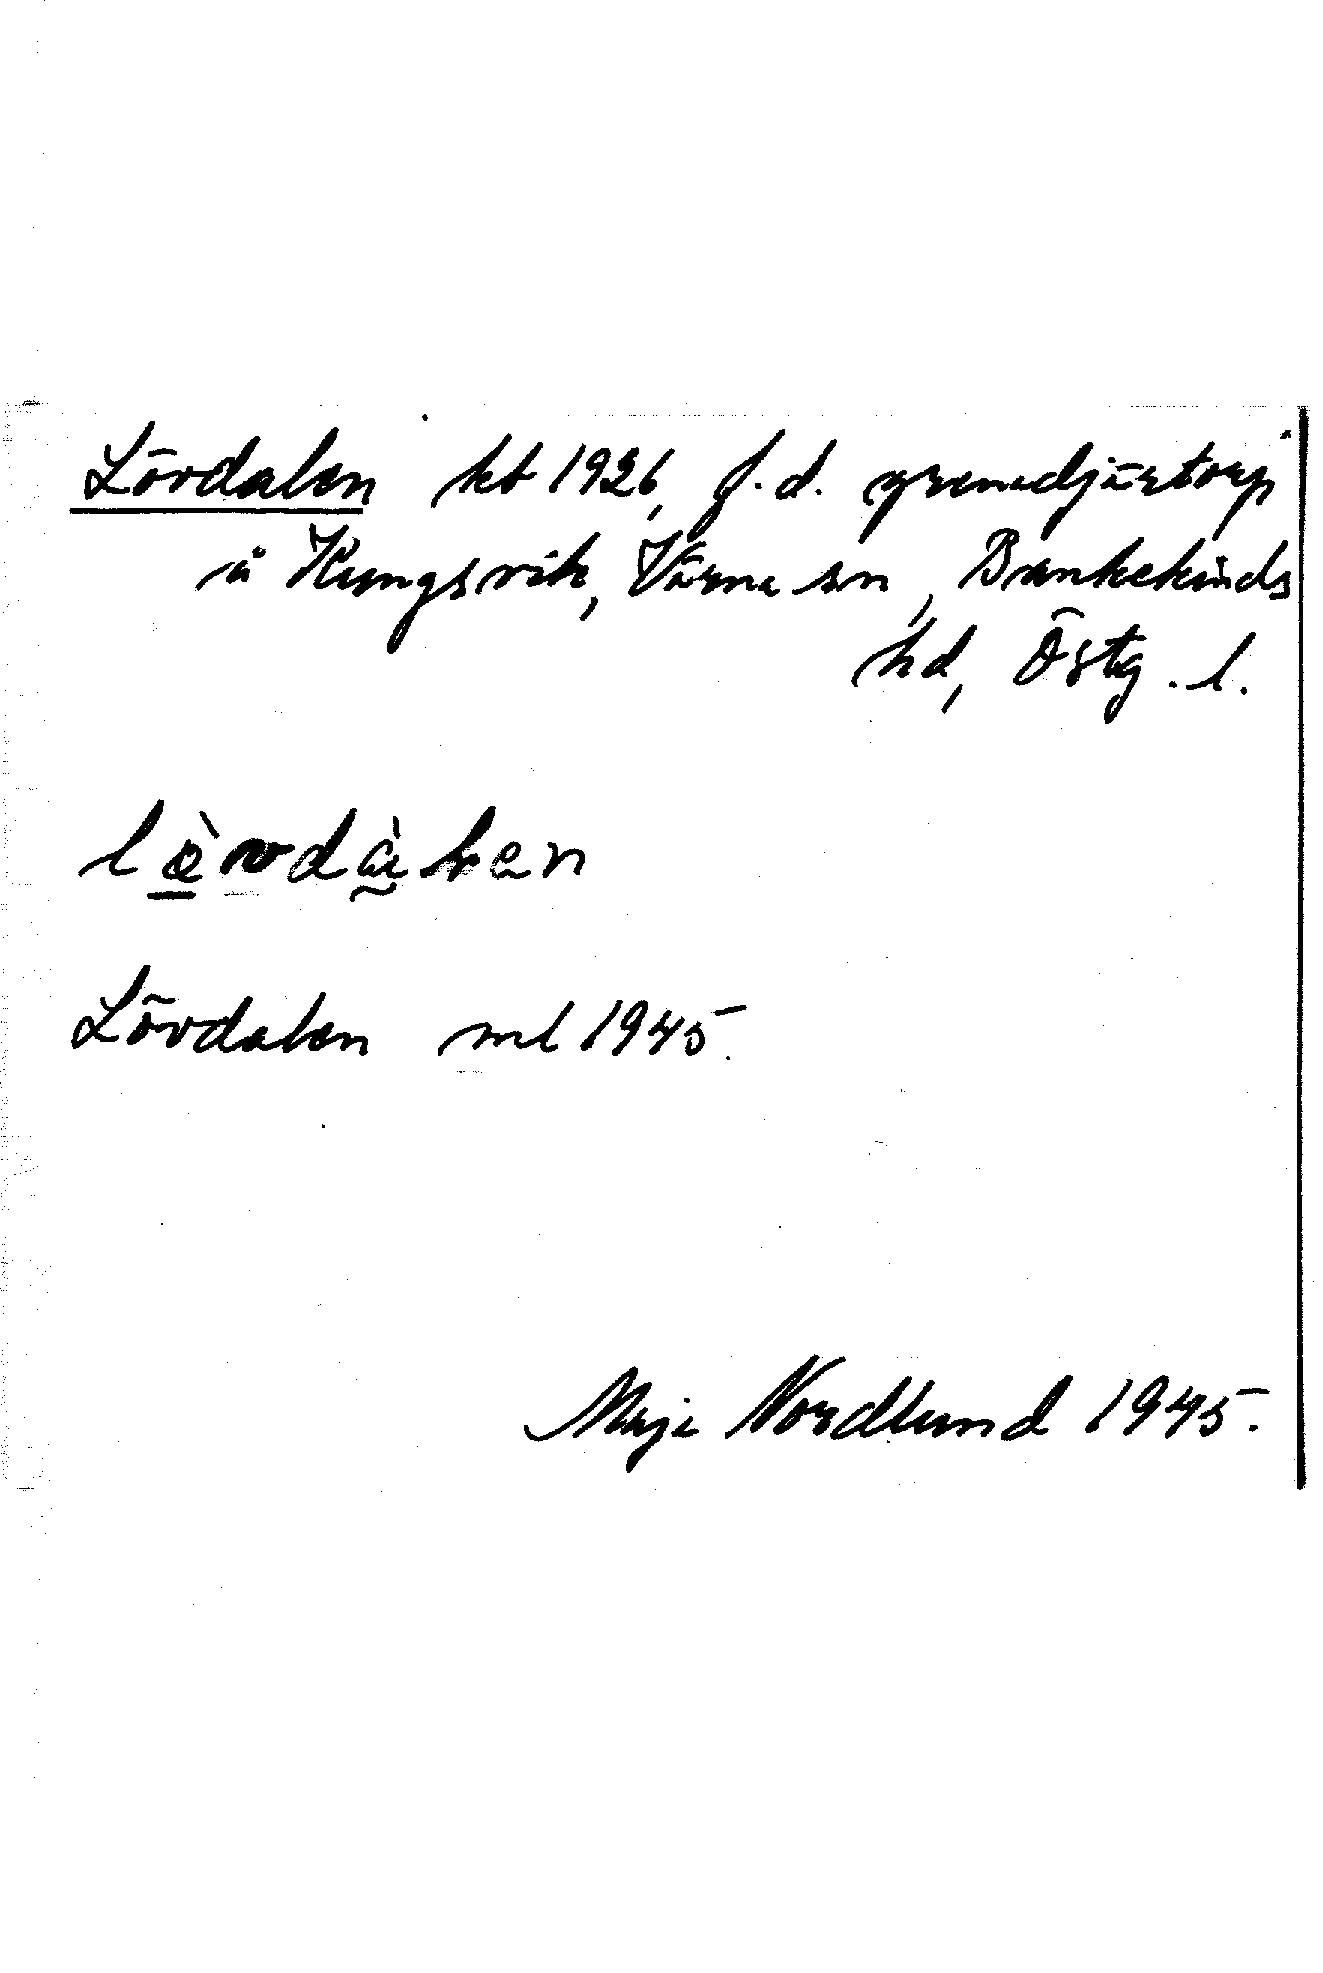 Lövdalen kb 1926, f.d. grenadjärtorp
å Kungsvik, Värna sn, Bankekinds
hd, Östg. l.
Lövdalen ml 1945.
Maja Nordlund 1945.